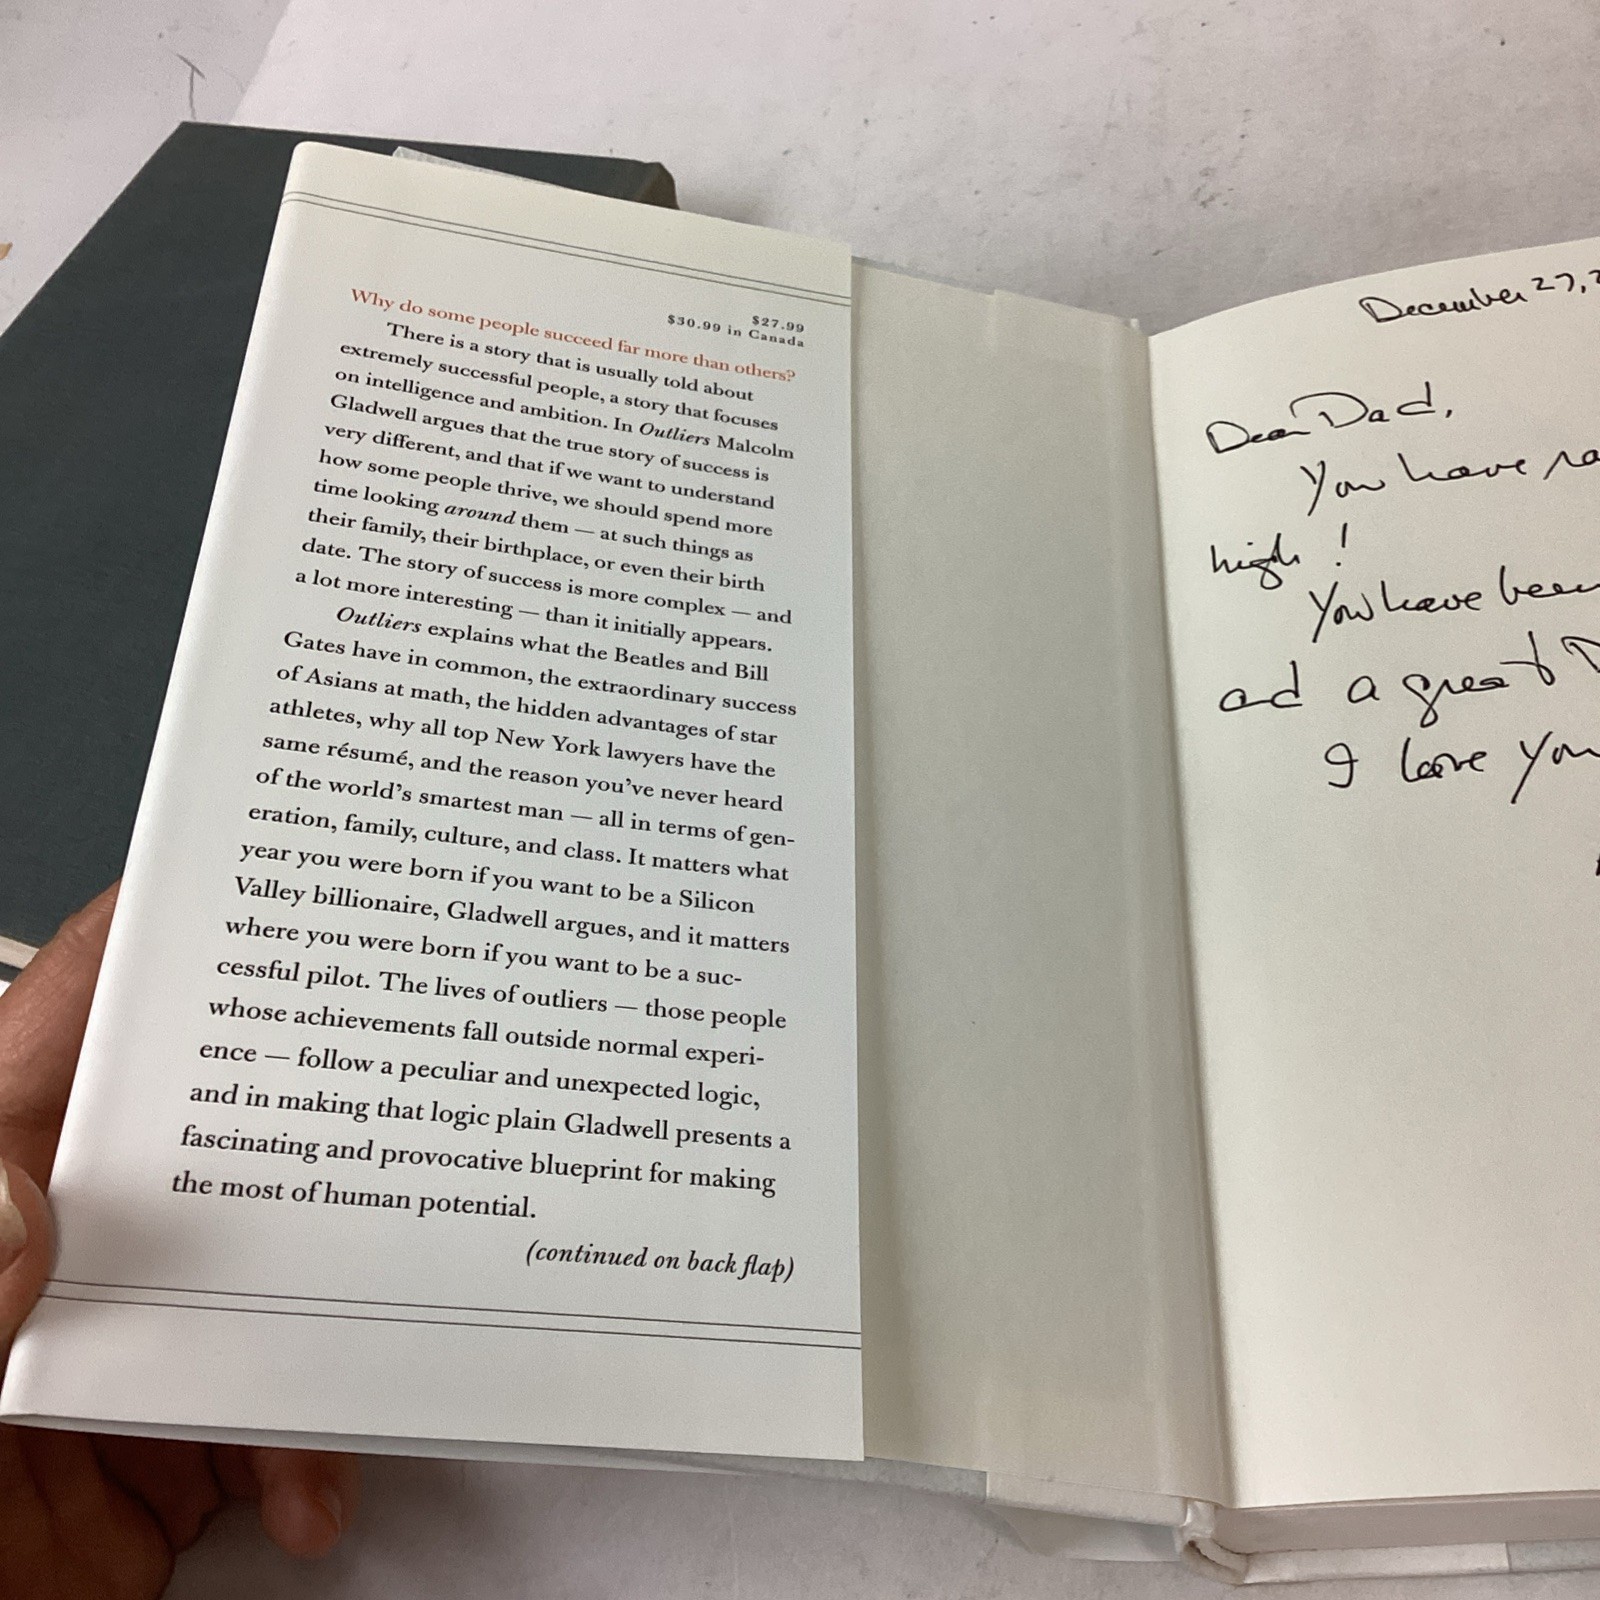 $27.99
$30.99 in Canada
Why do some people succeed far more than others?
There is a story that is usually told about
extremely successful people, a story that focuses
on intelligence and ambition. In Outliers Malcolm
Gladwell argues that the true story of success is
very different, and that if we want to understand
how some people thrive, we should spend more
time looking around them — at such things as
their family, their birthplace, or even their birth
date. The story of success is more complex — and
a lot more interesting — than it initially appears.
Outliers explains what the Beatles and Bill
Gates have in common, the extraordinary success
of Asians at math, the hidden advantages of star
athletes, why all top New York lawyers have the
same résumé, and the reason you've never heard
of the world's smartest man — all in terms of gen-
eration, family, culture, and class. It matters what
year you were born if you want to be a Silicon
Valley billionaire, Gladwell argues, and it matters
where you were born if you want to be a suc-
cessful pilot. The lives of outliers — those people
whose achievements fall outside normal experi-
ence — follow a peculiar and unexpected logic,
and in making that logic plain Gladwell presents a
fascinating and provocative blueprint for making
the most of human potential.
(continued on back flap)
December 27,
Dear Dad,
You have
high !
You have been
and a great
I love you